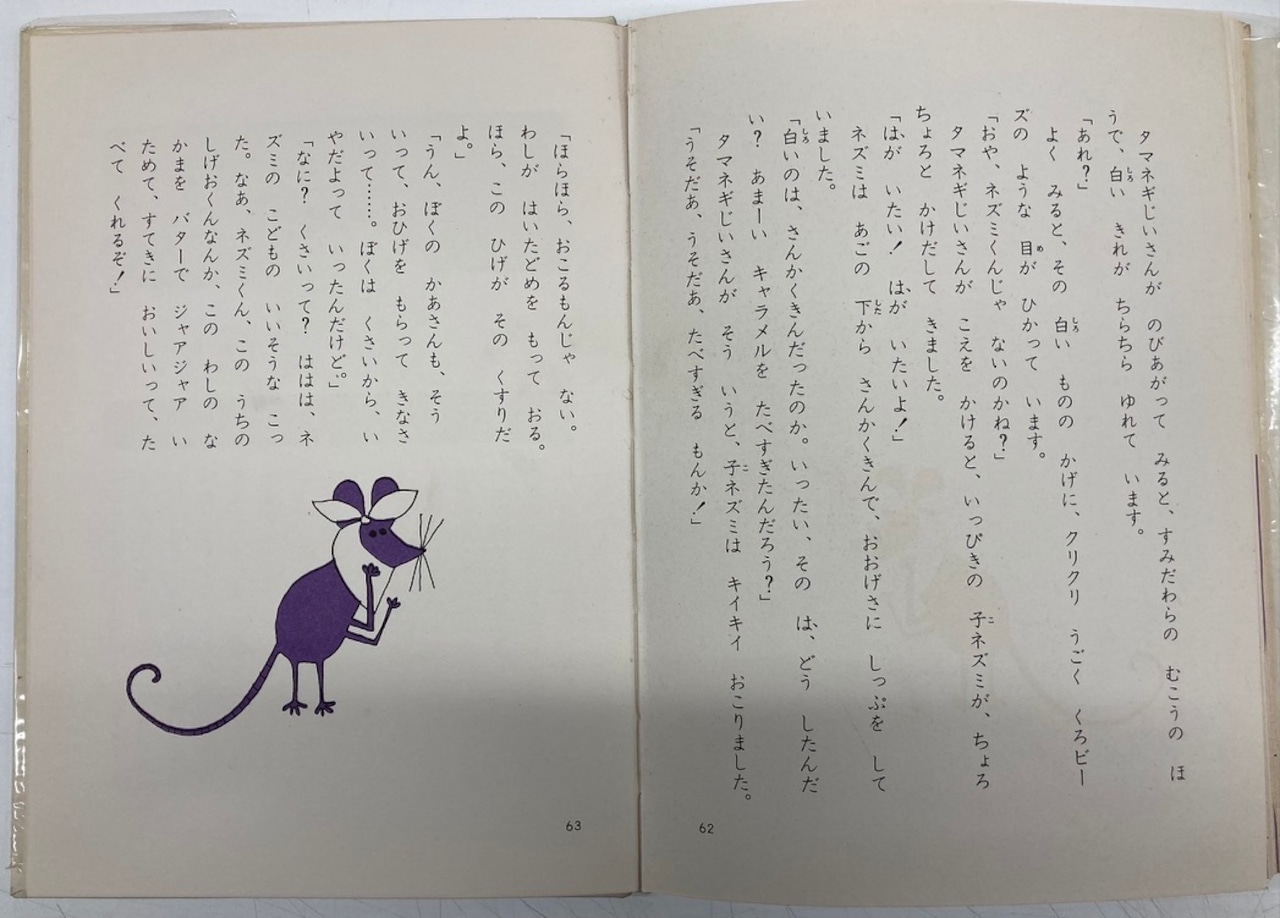 タマネギじいさんが のびあがって みると、すみだわらの むこうの ほ
うで、白い きれが ちらちら ゆれて います。
「あれ？」
よく みると、その 白い ものの かげに、クリクリ うごく くろビー
ズの ような 目が ひかって います。
「おや、ネズミくんじゃ ないのかね？」
タマネギじいさんが こえを かけると、いっぴきの 子ネズミが、ちょろ
ちょろと かけだして きました。
「はが いたい！ はが いたいよ！」
ネズミは あごの 下から さんかくきんで、おおげさに しっぷを して
いました。
「白いのは、さんかくきんだったのか。いったい、その は、どう したんだ
い？ あまーい キャラメルを たべすぎたんだろう？」
タマネギじいさんが そう いうと、子ネズミは キイキイ おこりました。
「うそだあ、うそだあ、たべすぎる もんか！」
62
「ほらほら、おこるもんじゃ ない。
わしが はいたどめを もって おる。
ほら、この ひげが その くすりだ
よ。」
「うん、ぼくの かあさんも、そう
いって、おひげを もらって きなさ
いって……。ぼくは くさいから、い
やだよって いったんだけど。」
「なに？ くさいって？ ははは、ネ
ズミの こどもの いいそうな こっ
た。なあ、ネズミくん、この うちの
しげおくんなんか、この わしの な
かまを バターで ジャアジャア い
ためて、すてきに おいしいって、た
べて くれるぞ！」
63